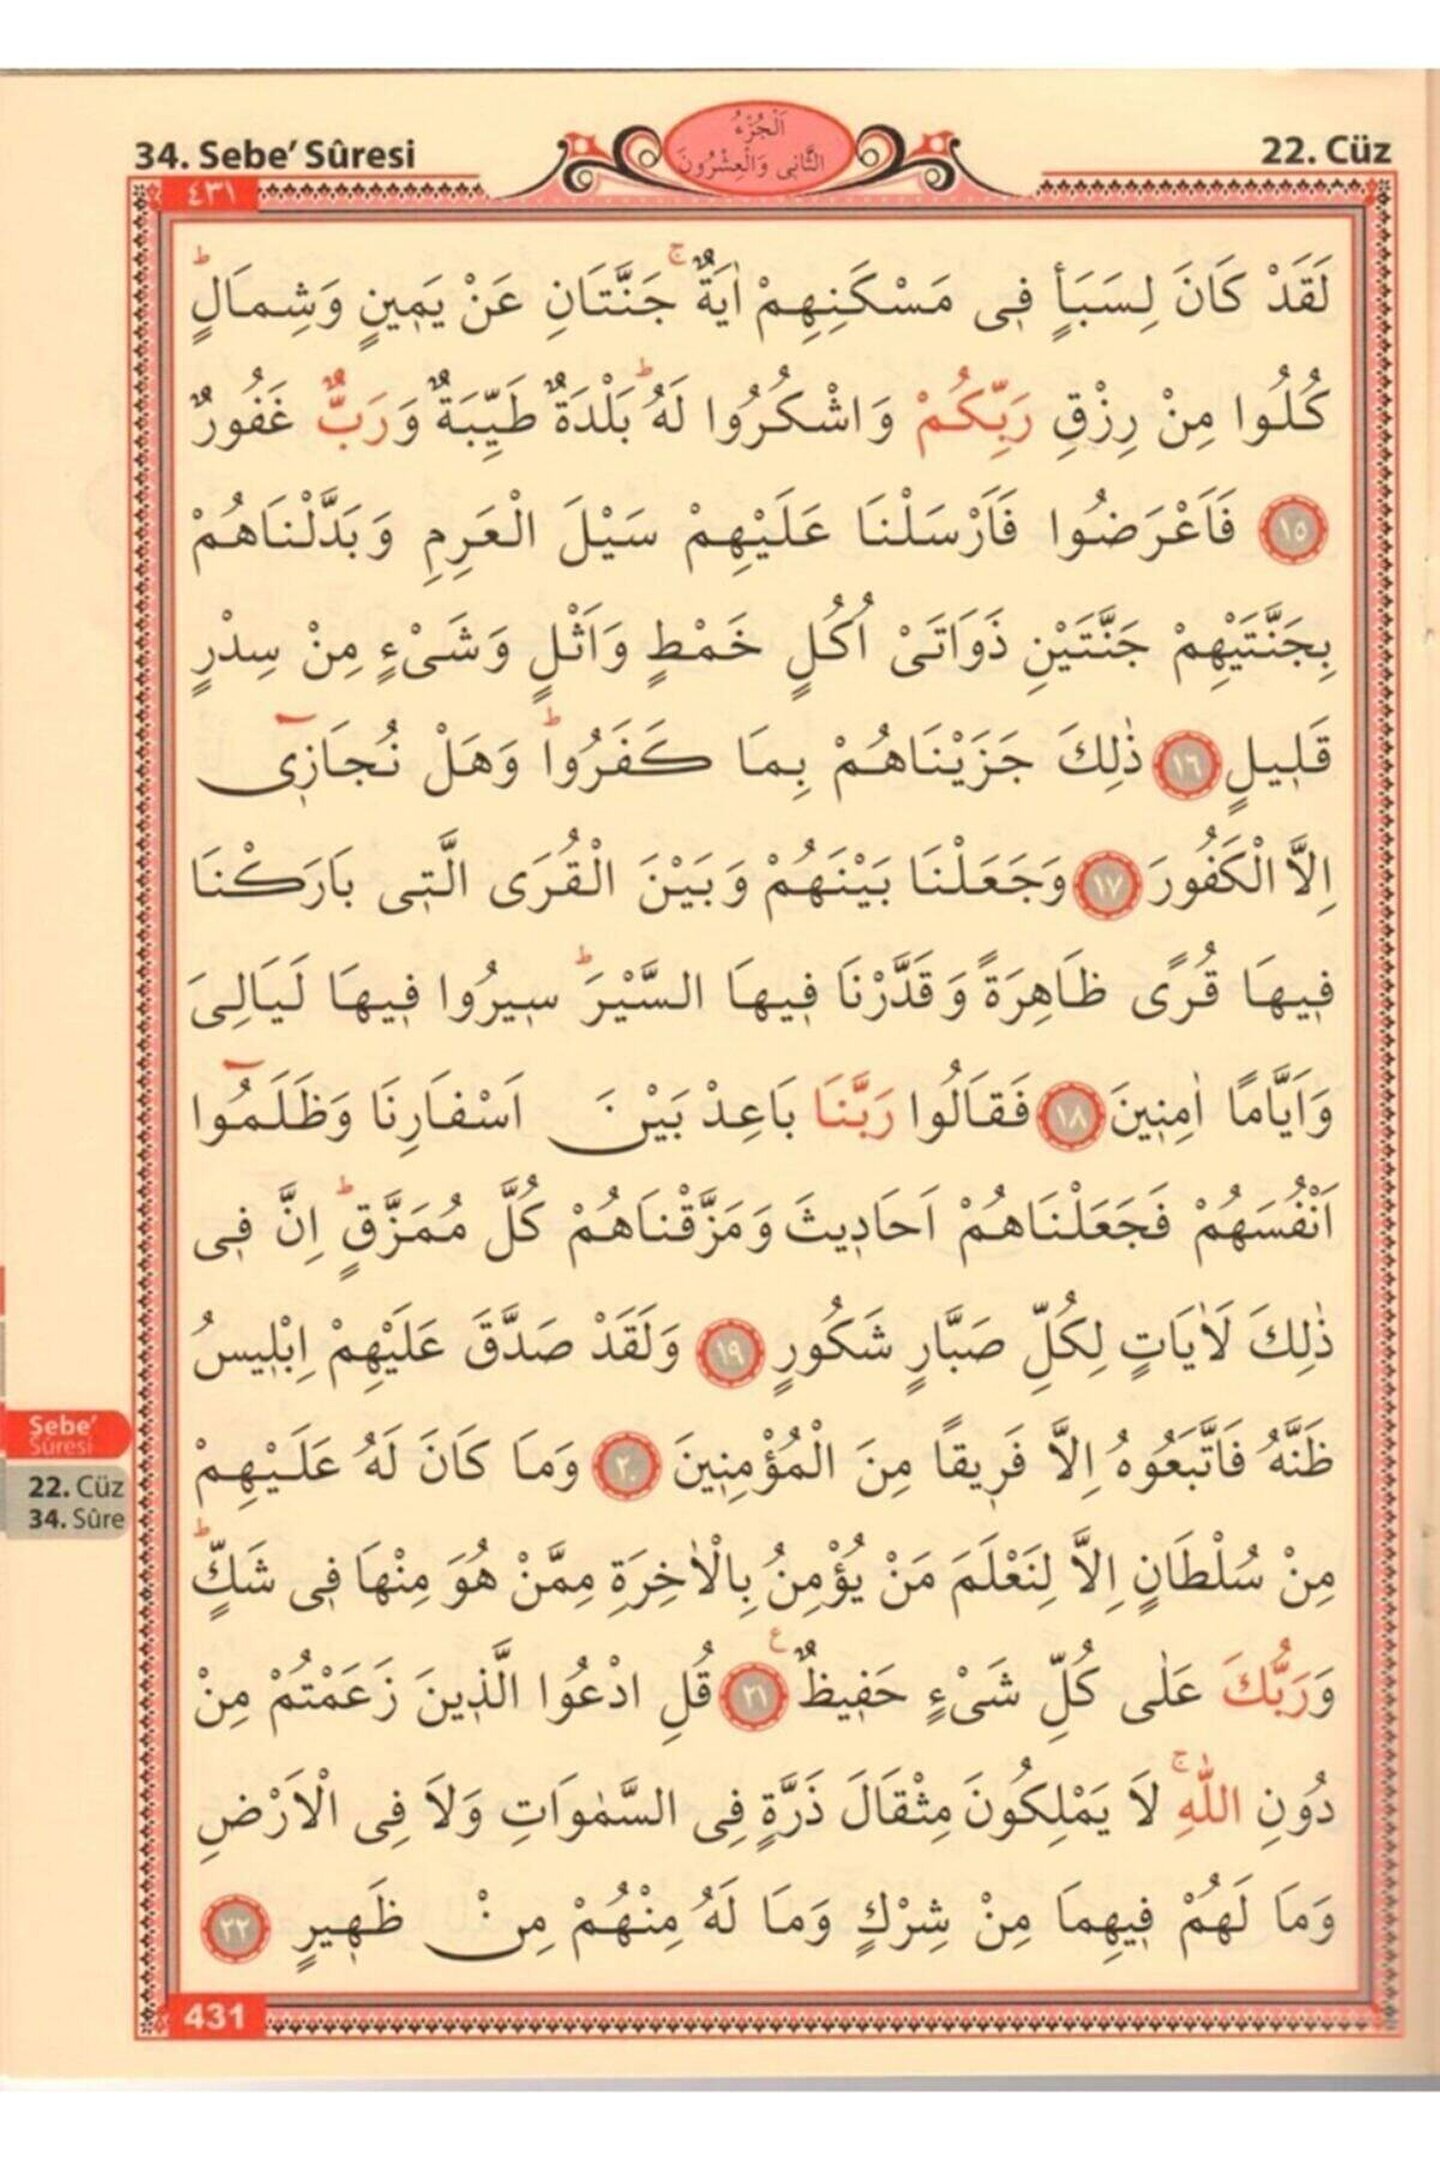 34. Sebe' Sûresi
اَلْجُزْءُ
الثَّانِى وَالْعِشْرُونَ
22. Cüz
٤٣١
لَقَدْ كَانَ لِسَبَأٍ فٖى مَسْكَنِهِمْ اٰيَةٌۚ جَنَّتَانِ عَنْ يَمٖينٍ وَشِمَالٍؕ
كُلُوا مِنْ رِزْقِ رَبِّكُمْ وَاشْكُرُوا لَهُؕ بَلْدَةٌ طَيِّبَةٌ وَرَبٌّ غَفُورٌ
﴿١٥﴾ فَاَعْرَضُوا فَاَرْسَلْنَا عَلَيْهِمْ سَيْلَ الْعَرِمِ وَبَدَّلْنَاهُمْ
بِجَنَّتَيْهِمْ جَنَّتَيْنِ ذَوَاتَىْ اُكُلٍ خَمْطٍ وَاَثْلٍ وَشَىْءٍ مِنْ سِدْرٍ
قَلٖيلٍ ﴿١٦﴾ ذٰلِكَ جَزَيْنَاهُمْ بِمَا كَفَرُواؕ وَهَلْ نُجَازٖٓى
اِلَّا الْكَفُورَ ﴿١٧﴾ وَجَعَلْنَا بَيْنَهُمْ وَبَيْنَ الْقُرَى الَّتٖى بَارَكْنَا
فٖيهَا قُرًى ظَاهِرَةً وَقَدَّرْنَا فٖيهَا السَّيْرَؕ سٖيرُوا فٖيهَا لَيَالِىَ
وَاَيَّامًا اٰمِنٖينَ ﴿١٨﴾ فَقَالُوا رَبَّنَا بَاعِدْ بَيْنَ اَسْفَارِنَا وَظَلَمُٓوا
اَنْفُسَهُمْ فَجَعَلْنَاهُمْ اَحَادٖيثَ وَمَزَّقْنَاهُمْ كُلَّ مُمَزَّقٍؕ اِنَّ فٖى
ذٰلِكَ لَاٰيَاتٍ لِكُلِّ صَبَّارٍ شَكُورٍ ﴿١٩﴾ وَلَقَدْ صَدَّقَ عَلَيْهِمْ اِبْلٖيسُ
ظَنَّهُ فَاتَّبَعُوهُ اِلَّا فَرٖيقًا مِنَ الْمُؤْمِنٖينَ ﴿٢٠﴾ وَمَا كَانَ لَهُ عَلَيْهِمْ
مِنْ سُلْطَانٍ اِلَّا لِنَعْلَمَ مَنْ يُؤْمِنُ بِالْاٰخِرَةِ مِمَّنْ هُوَ مِنْهَا فٖى شَكٍّؕ
وَرَبُّكَ عَلٰى كُلِّ شَىْءٍ حَفٖيظٌ ﴿٢١﴾ع قُلِ ادْعُوا الَّذٖينَ زَعَمْتُمْ مِنْ
دُونِ اللّٰهِۚ لَا يَمْلِكُونَ مِثْقَالَ ذَرَّةٍ فِى السَّمٰوَاتِ وَلَا فِى الْاَرْضِ
وَمَا لَهُمْ فٖيهِمَا مِنْ شِرْكٍ وَمَا لَهُ مِنْهُمْ مِنْ ظَهٖيرٍ ﴿٢٢﴾
Sebe'
Sûresi
22. Cüz
34. Sûre
431